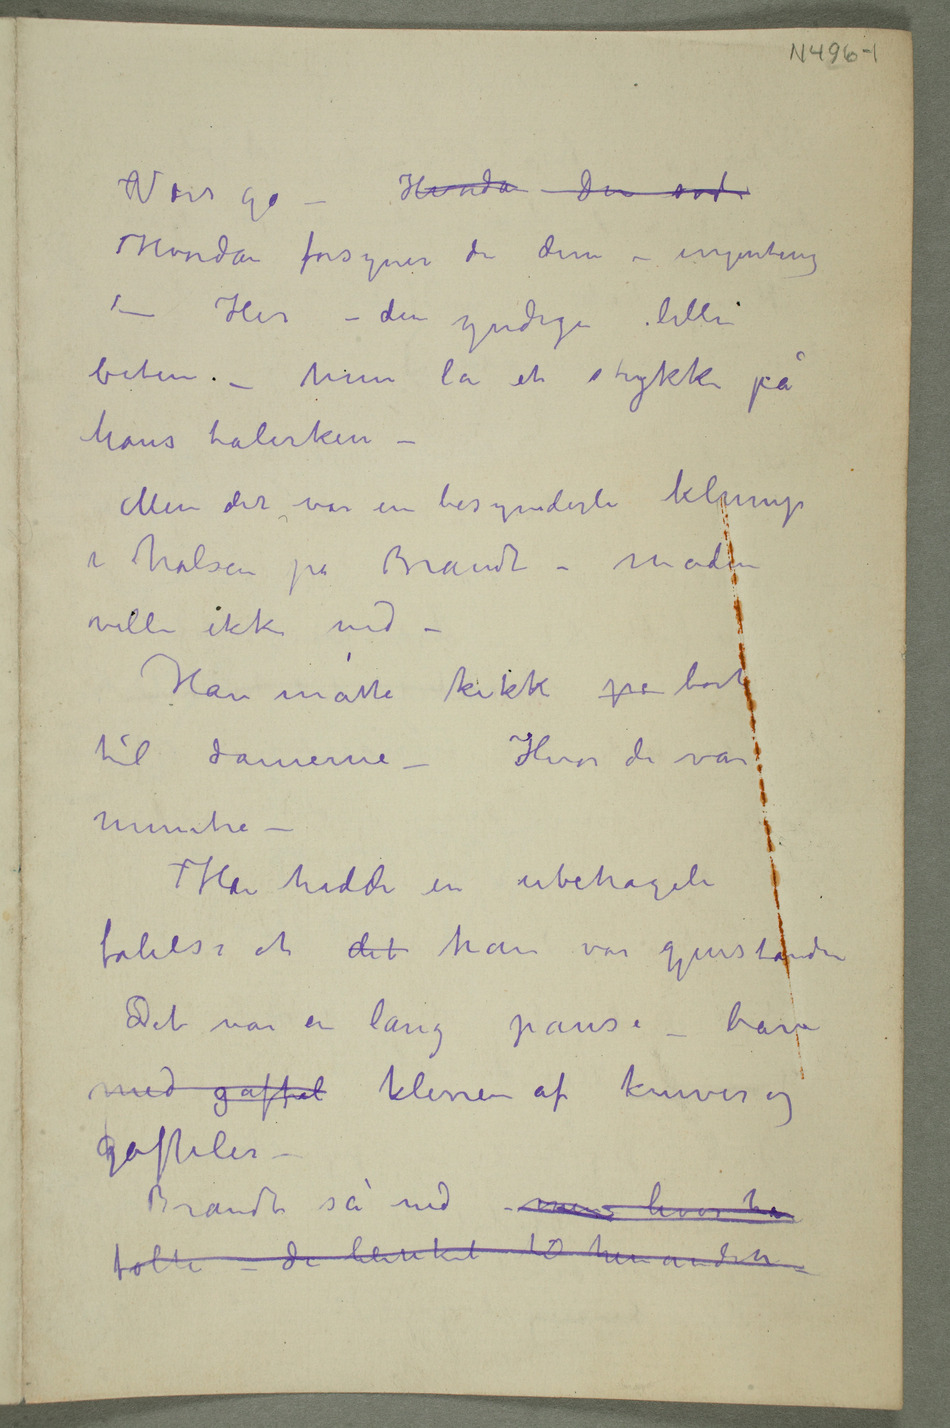 N496-1
Værs go – Hvorda den sod
Hvordan forsyner de dem – ingenting
– Her – den yndige lille
biten. – hun la et stykke på
hans talerken –
Men det var en besynderli klump
i halsen på Brandt – maden
ville ikke ned –
Han måtte kikke pa bort
til damerne – Hvor de var
muntre –
Han hadde en ubehageli
følelse at det han var gjenstanden
Det var en lang pause – bare
med gaffel klirren af kniver og
gafteler –
Brandt så ned – men hvor han
følte – de blinket til hinanden –